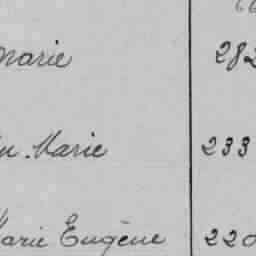 Marie 282
Marie 233
Marie Eugène 220